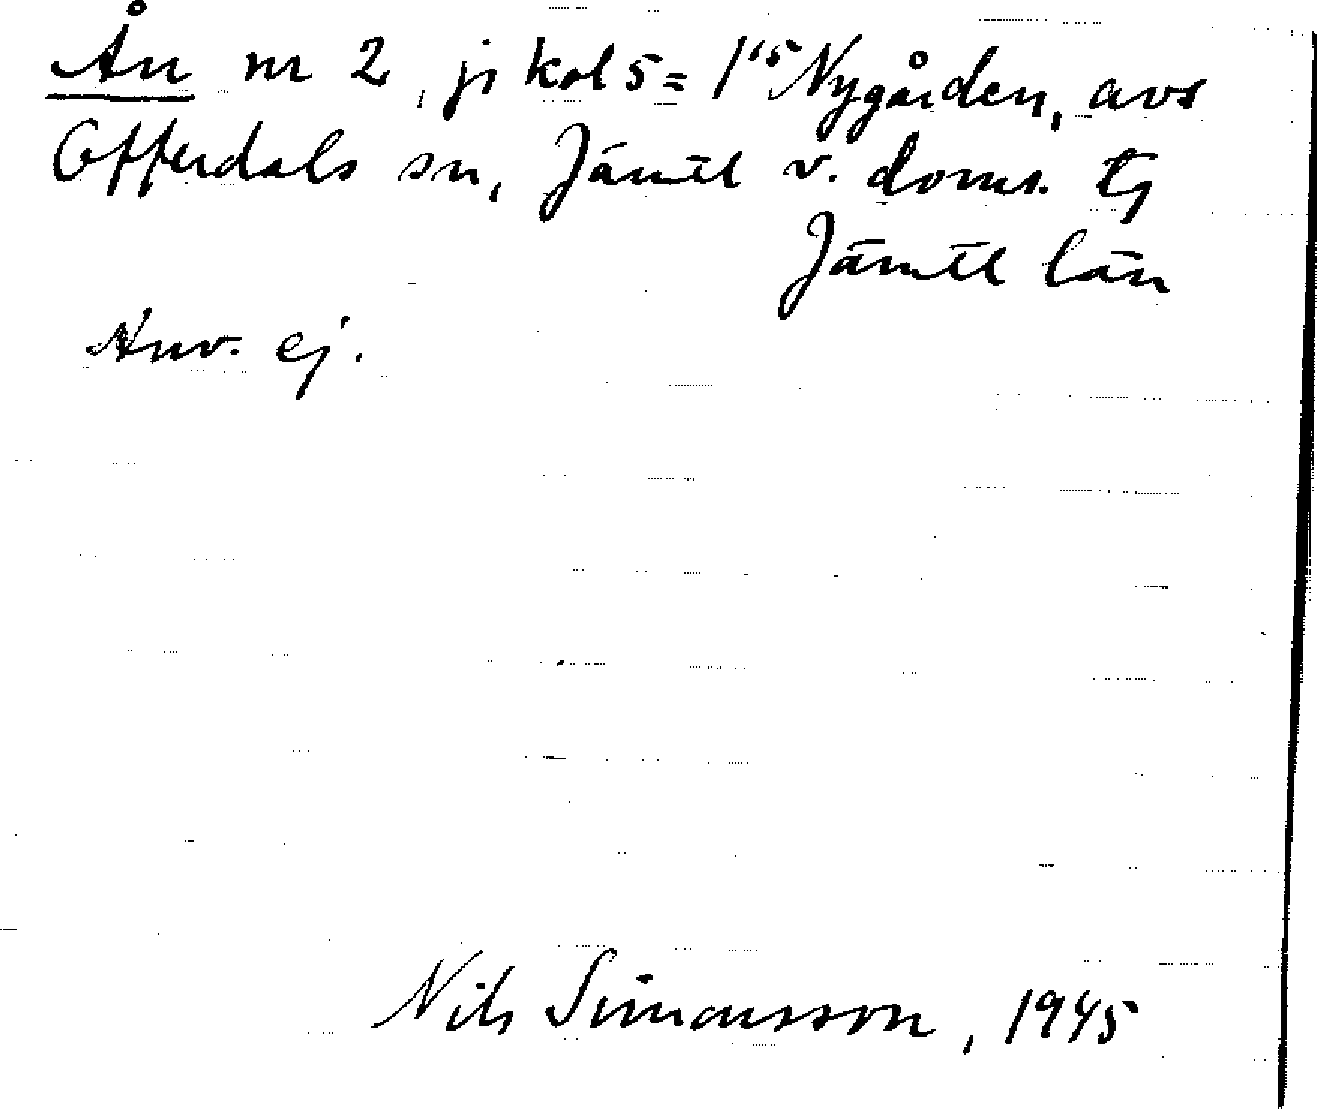 Ån nr 2, jr kol 5 = 1¹⁵ Nygården, avs
Offerdals sn, Jämtl v. doms. tg
Jämtl län
Anv. ej.
Nils Simonsson, 1945